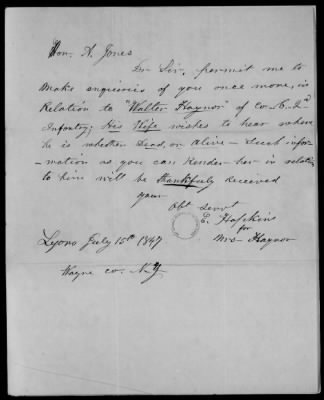 Hon. A. Jones
Dr Sir, permit me to
make enquiries of you once more, in
Relation to "Walter Haynor" of Co. C. 2nd
Infantry; His Wife wishes to hear where
he is whether Dead, or alive - Such infor-
-mation as you can Render her in relation
to him will be thankfuly received
your
Obt Servt
E. Hopkins
for
Mrs Haynor
Lyons July 15th 1847
Wayne co. N.Y.